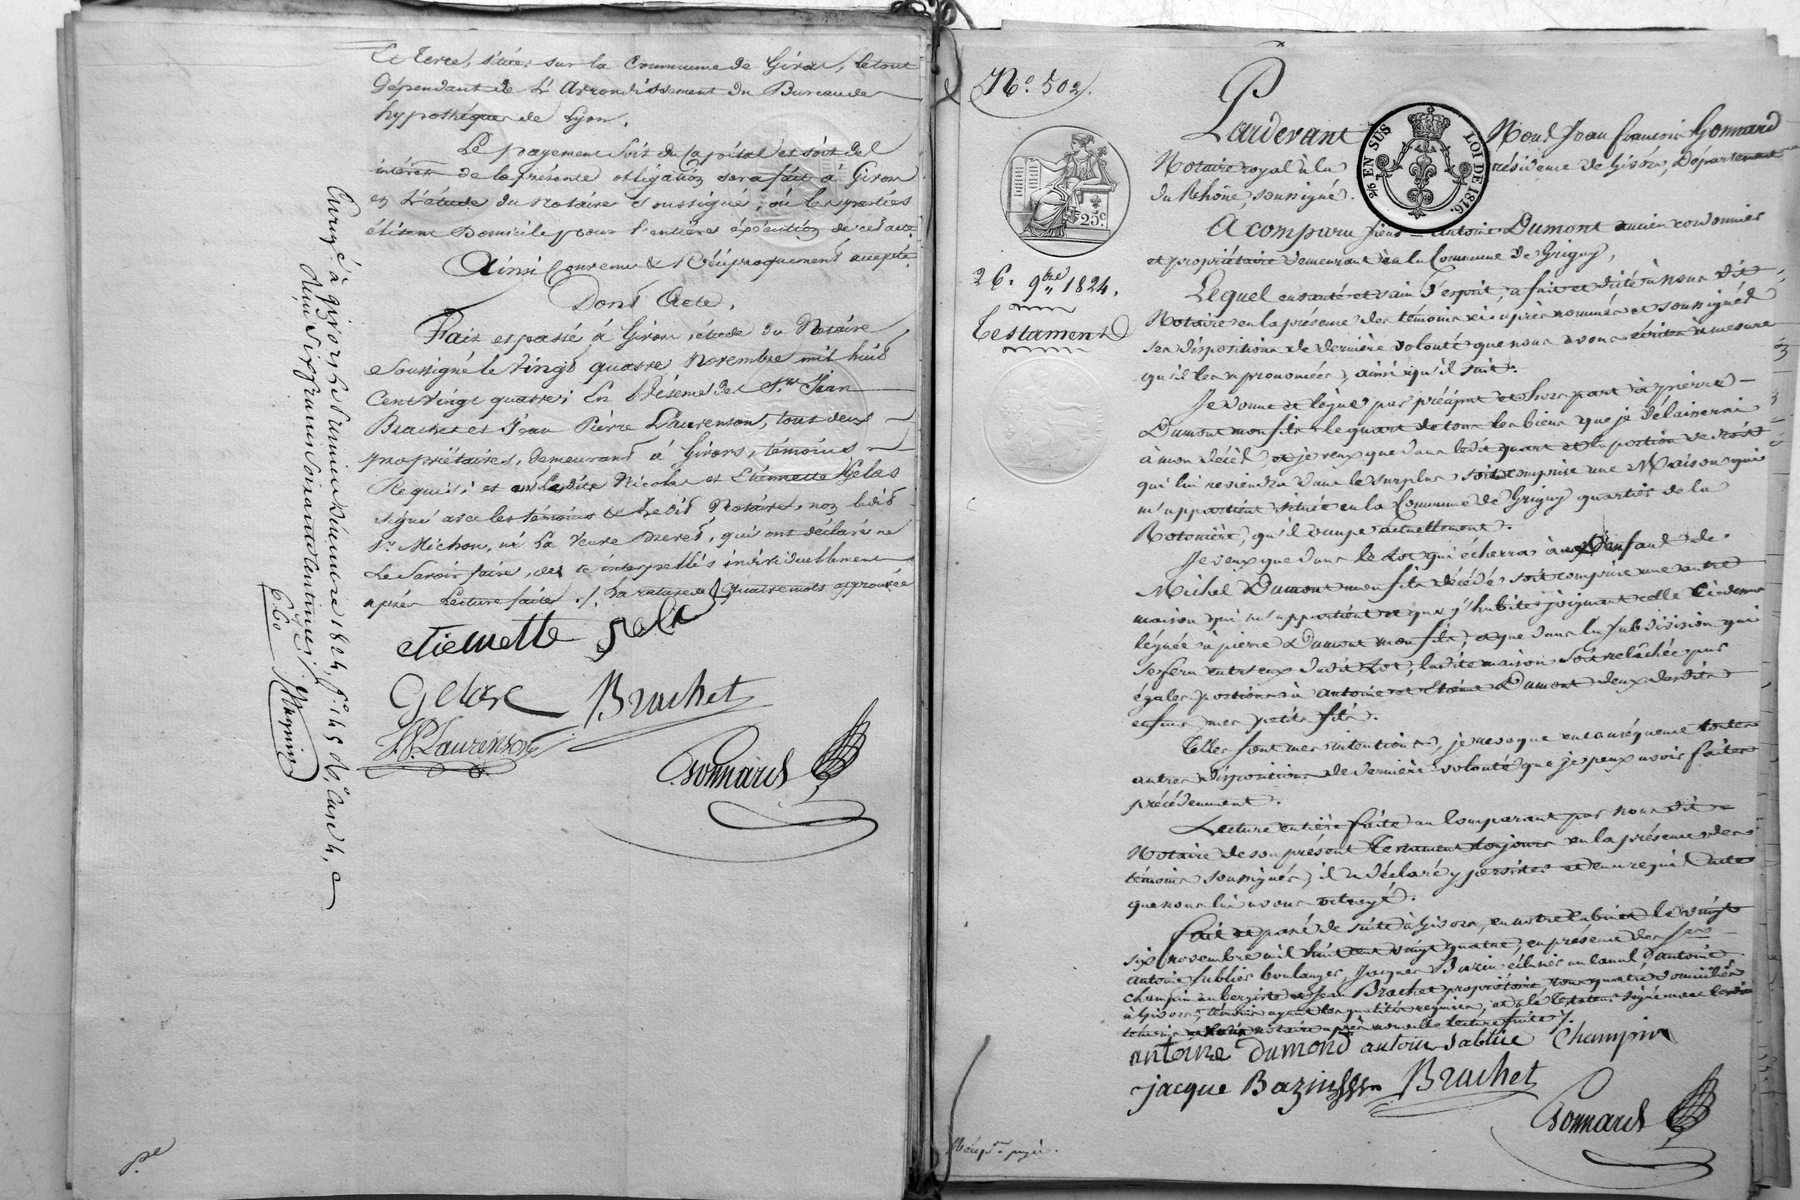 Et terre, située sur la Commune de Givors, le tout
dépendant de L'Arrondissement du Bureau de
hypothéques de Lyon.
Le payement soit du Capital et soit des
intérêts de la présente obligation sera fait à Givors
en L'étude du Notaire soussigné, où les parties
élisent Domicile pour l'entière exécution de cet acte
Ainsi Convenu & Réciproquement accepté.
Dont Acte.
Fait et passé à Givors, étude du Notaire
Soussigné le vingt quatre novembre mil huit
Cent vingt quatre; En Présence des Srs Jean
Brachet et Jean Pierre Laurenson, tous deux
propriétaires, demeurant à Givors, témoins
Requis; et Nicolas et Etiennette Gelas
signé avec les témoins & le dit Notaire, non ledit
Sr Michon, ni La Veuve qui ont déclaré ne
Le Savoir faire, de ce interpellés individuellement
après Lecture faite ./. La rature de quatre mots approuvée
etiennette gelas
Gelas Brachet
J.P. Laurenson
Gonnard
Enregé à Givors le premier Décembre 1824, fo. 45 Ro. Case 4, a
660 Magnin
N.o 502.
25c.
26. 9bre 1824.
Testament
2/5 EN SUS LOI DE 1816.
Pardevant Nous Jean François Gonnard
Notaire royal à la résidence de Givors, Département
du Rhône soussigné.
A comparu sieur Antoine Dumont ancien cordonnier
et propriétaire demeurant en la Commune de Grigny,
Lequel en santé et sain d'esprit, a fait et dicté à nous dit
Notaire en la présence des témoins ci après nommés et soussignés
ses dispositions de dernière volonté que nous avons écrites a mesure
qu'il les a prononcées, ainsi qu'il suit.
Je donne et lègue par préciput et hors part à pierre
Dumont mon fils le quart de tous les biens que je délaisserai
à mon décès, et je veux que dans ledit quart et la portion de droit
qui lui reviendra dans le surplus soit comprise une Maison qui
m'appartient située en la Commune de Grigny quartier de la
Rotonière, qu'il occupe actuellement.
Je veux que dans le Lot qui écherra aux Enfants de
Michel Dumont mon fils décédé soit comprise une autre
maison qui m'appartient et que j'habite joignant celle cidevant
léguée à pierre Dumont mon fils, et que dans la subdivision qui
se fera entr'eux dudit Lot, ladite maison soit relâchée par
égales portions à antoine et Dumont deux desdits
enfans mes petits fils.
Telles sont mes intentions, je révoque en conséquence toutes
autres dispositions de dernière volonté que je peux avoir faites
précédemment.
Lecture entière faite au Comparant par nous dit
Notaire de son présent Testament toujours en la présence des
témoins soussignés, il a déclaré y persister et en a requis acte
que nous lui avons octroyé.
Fait et passé de suite à Givors, en notre cabinet le vingt
six novembre mil huit cent vingt quatre, en présence des srs
antoine Sablier boulanger, Jacques Bazin éclusier au canal, d'antoine
champin aubergiste et Jean Brachet propriétaire, tous quatre domiciliés
à Givors, témoins ayant les qualités requises, et le Testateur signé avec lesdits
témoins et nous notaire après nouvelle lecture faite ./.
antoine Dumond antoin sablié Champin
jacque Bazin Brachet
Gonnard